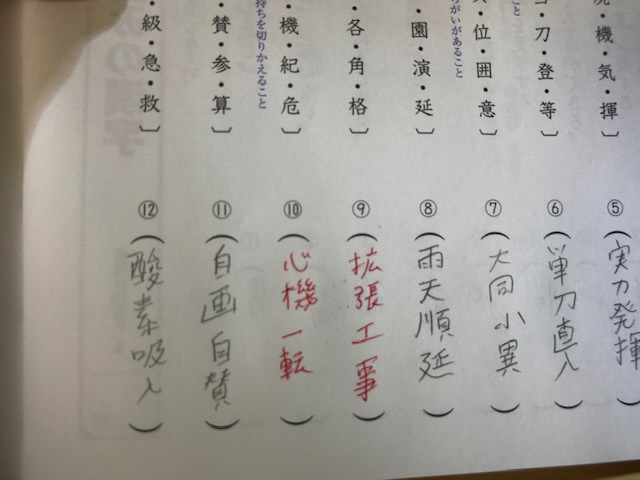 ・機・気・揮〕
⑤（実力発揮
・刀・登・等〕
⑥（単刀直入）
こと
・位・囲・意〕
⑦（大同小異）
がいがあること
・園・演・延〕
⑧（雨天順延）
・各・角・格〕
⑨（拡張工事）
・機・紀・危〕
⑩（心機一転）
持ちを切りかえること
・賛・参・算〕
⑪（自画自賛）
・級・急・救〕
⑫（酸素吸入）